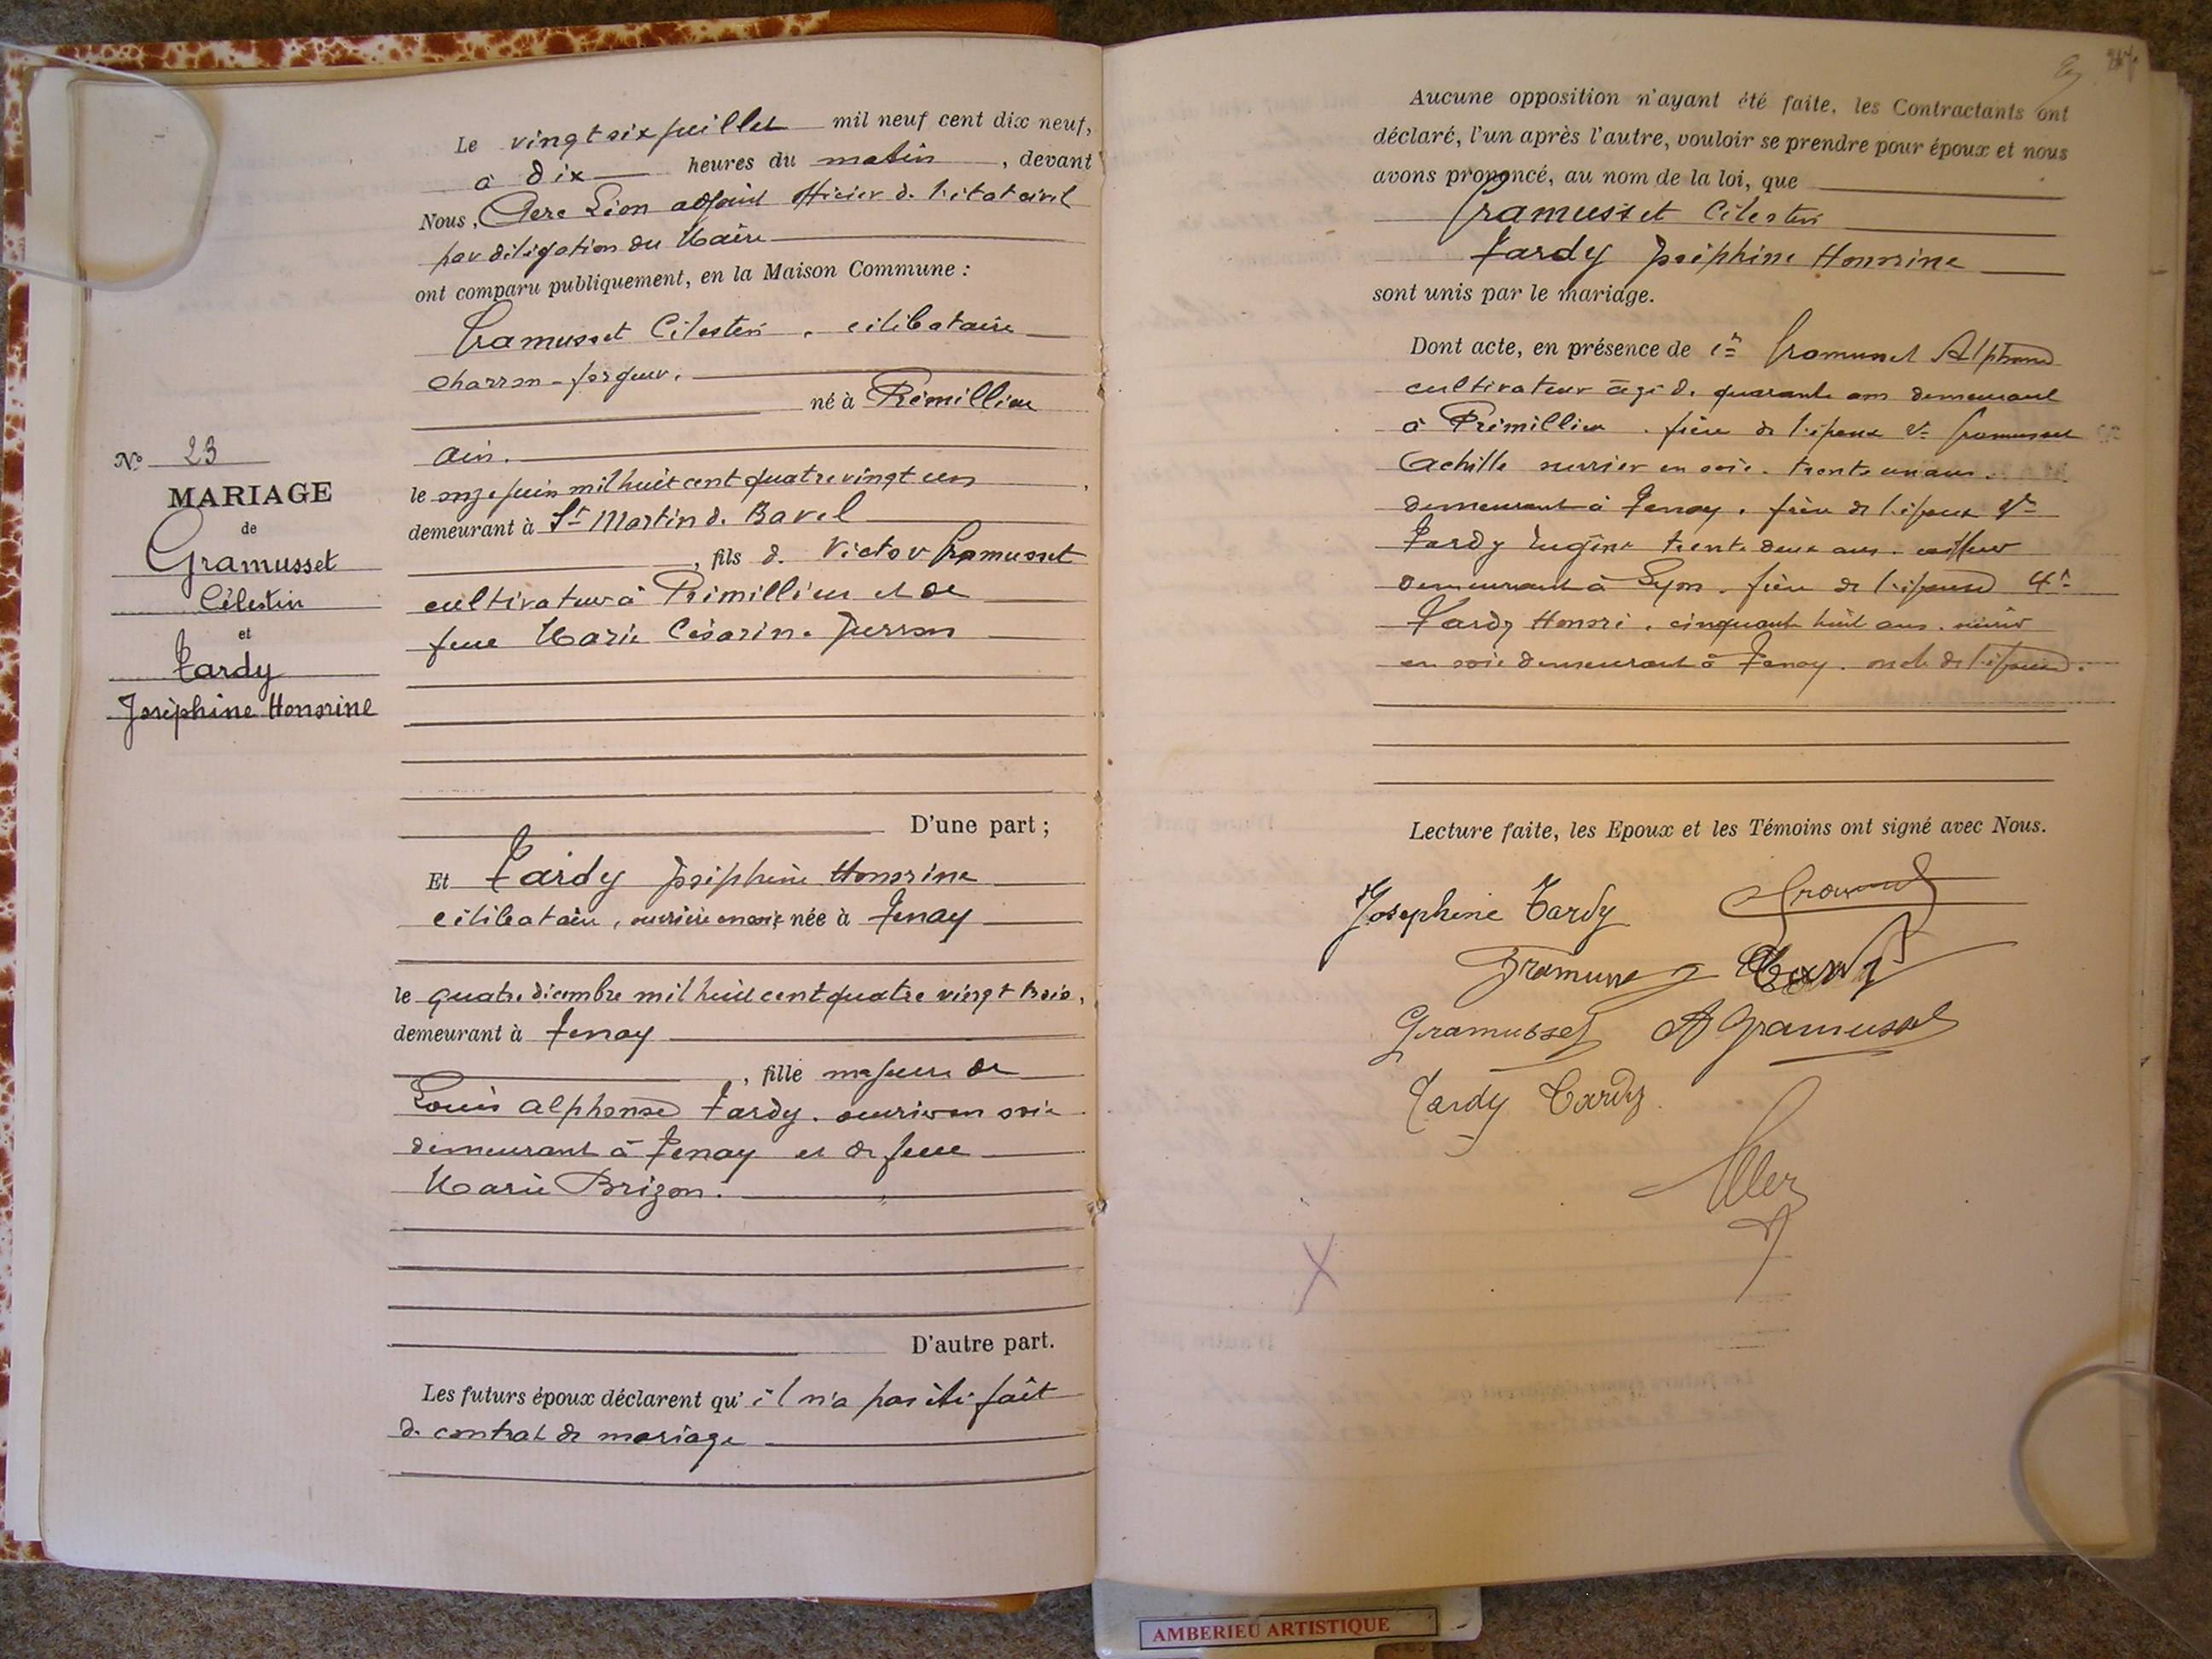 Le vingt six juillet mil neuf cent dix neuf,
à dix heures du matin, devant
Nous, Léon adjoint officier de l'état civil
par délégation du Maire
ont comparu publiquement, en la Maison Commune :
Gramusset Célestin, célibataire
charron-forgeur,
né à Prémillieu
Ain.
le onze juin mil huit cent quatre vingt un,
demeurant à St Martin de Bavel
, fils de Victor Gramusset
cultivateur à Prémillieu et de
feue Marie Césarine
D'une part ;
Et Tardy Joséphine Honorine
célibataire, ouvrière en soie née à Tenay
le quatre décembre mil huit cent quatre vingt trois,
demeurant à Tenay
, fille majeure de
Louis Alphonse Tardy, ouvrier en soie
demeurant à Tenay et de feue
Marie Brizon.
D'autre part.
Les futurs époux déclarent qu'il n'a pas été fait
de contrat de mariage
No 23
MARIAGE
de
Gramusset
Célestin
et
Tardy
Joséphine Honorine
Aucune opposition n'ayant été faite, les Contractants ont
déclaré, l'un après l'autre, vouloir se prendre pour époux et nous
avons prononcé, au nom de la loi, que
Gramusset Célestin
Tardy Joséphine Honorine
sont unis par le mariage.
Dont acte, en présence de 1er Gramusset Alphonse
cultivateur âgé de quarante ans demeurant
à Prémillieu, frère de l'époux 2e Gramusset
Achille ouvrier en soie, trente un ans,
demeurant à Tenay, frère de l'époux 3e
Tardy Eugène trente deux ans, coiffeur
demeurant à Lyon, frère de l'épouse 4e
Tardy Honoré, cinquante huit ans, ouvrier
en soie demeurant à Tenay, oncle de l'épouse.
Lecture faite, les Epoux et les Témoins ont signé avec Nous.
Josephine Tardy
Gramusset
Gramusset A Gramusset
Tardy Tardy
AMBERIEU ARTISTIQUE